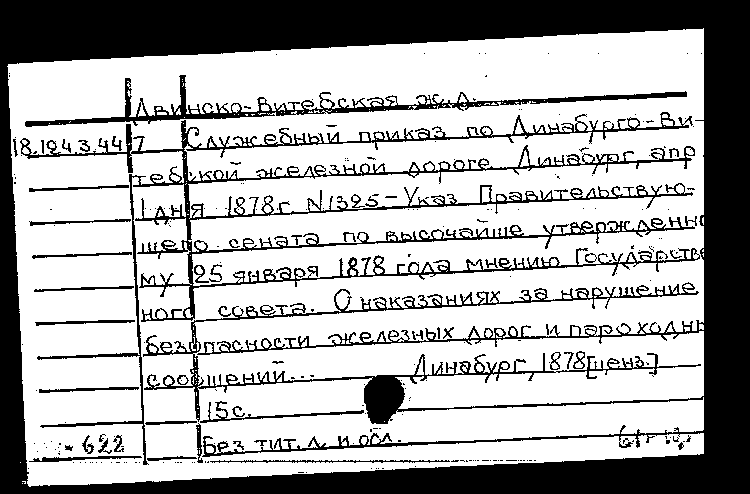 Двинско-Витебская ж.д.
18.124.3.447 Служебный приказ по Динабурго-Ви-
тебской железной дороге. Динабург, апр.
1 дня 1878г. N1325-Указ Правительствую-
щего сената по высочайше утвержденно
му 25 января 1878 года мнению Государстве
ного совета. О наказаниях за нарушение
безопасности железных дорог и пароходны
сообщений... Динабург, 1878[ценз.]
15с.
Без тит. л. и обл.
-622